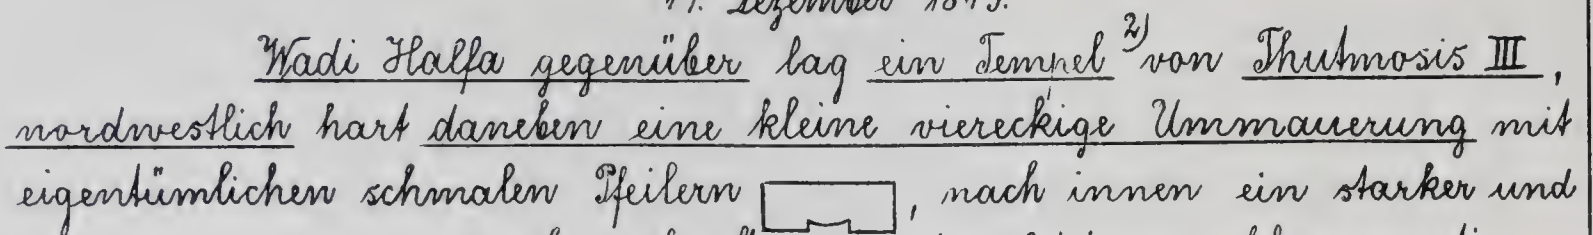 Dezember
Wadi Halfa gegenüber lag ein Tempel 2) von Thutmosis III,
nordwestlich hart daneben eine kleine viereckige Ummauerung mit
eigentümlichen schmalen Pfeilern , nach innen ein starker und